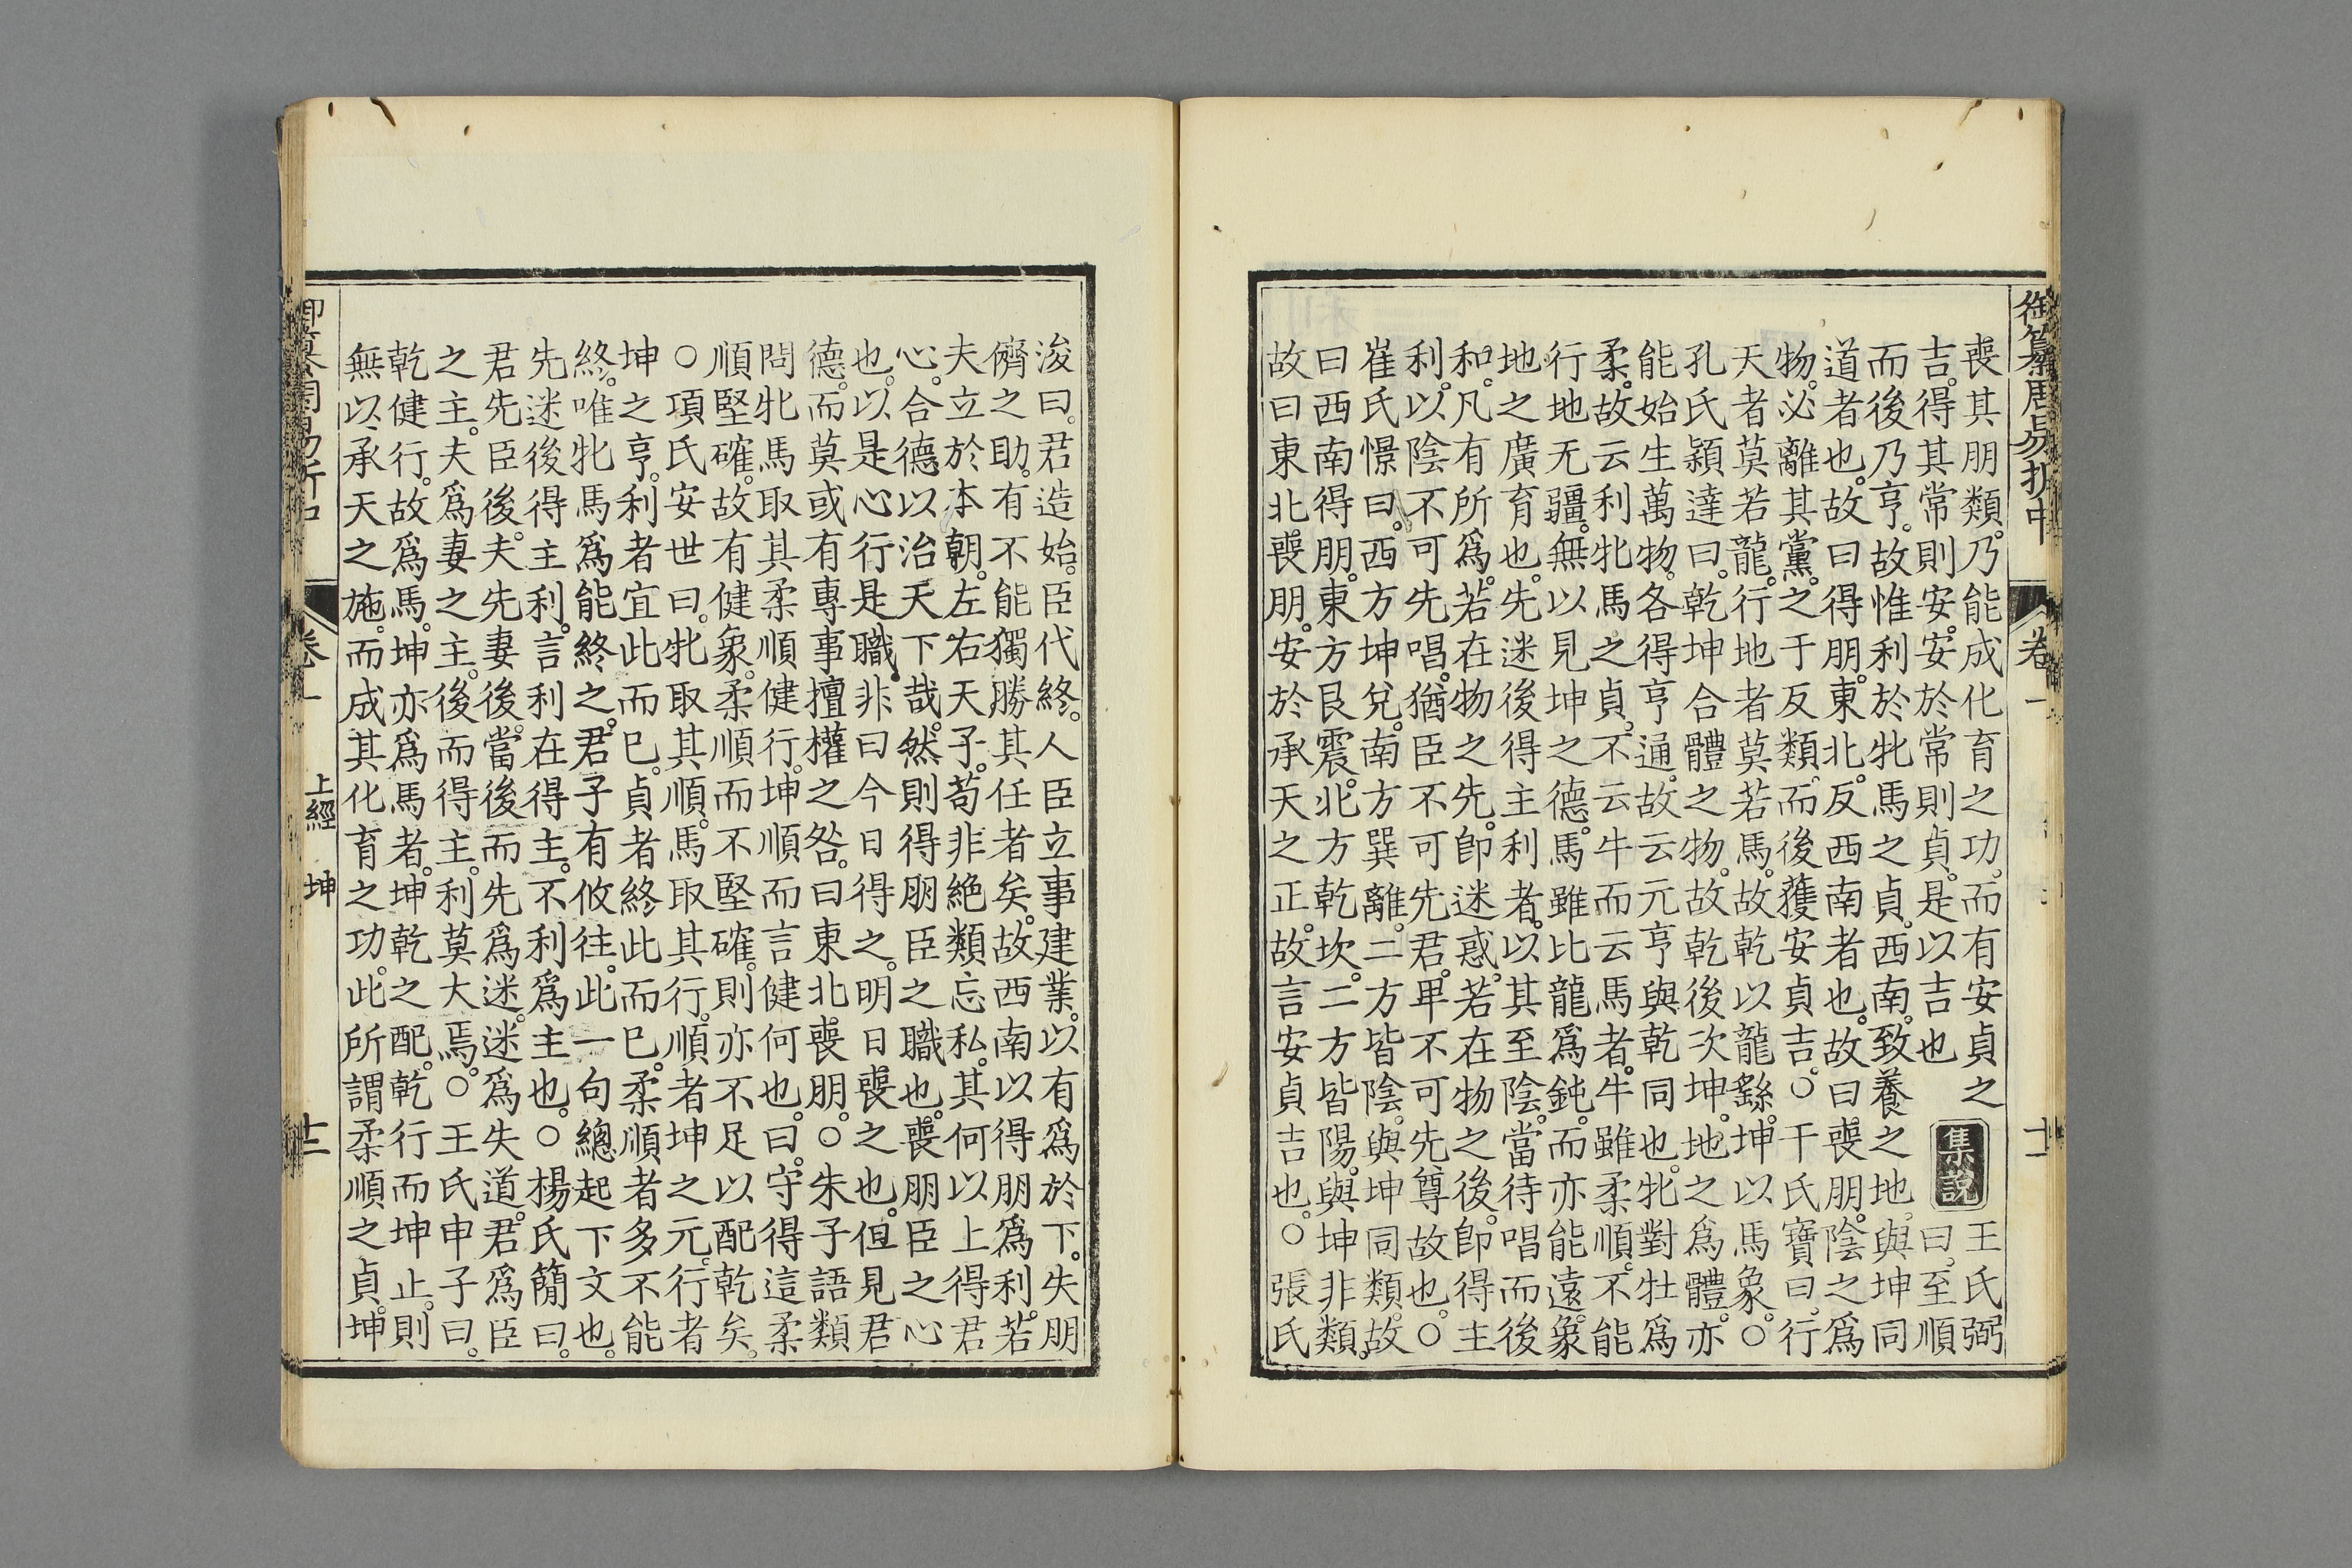 御纂周易折中 卷一 十一
喪其朋類。乃能成化育之功。而有安貞之
吉。得其常則安。安於常則貞。是以吉也
集說
王氏弼
曰。至順
而後乃亨。故惟利於牝馬之貞。西南。致養之地。與坤同
道者也。故曰得朋。東北。反西南者也。故曰喪朋。陰之爲
物。必離其黨。之于反類。而後獲安貞吉。○干氏寶曰。行
天者莫若龍。行地者莫若馬。故乾以龍繇。坤以馬象。○
孔氏穎達曰。乾坤合體之物。故乾後次坤。地之爲體。亦
能始生萬物。各得亨通。故云元亨與乾同也。牝對牡爲
柔。故云利牝馬之貞。不云牛而云馬者。牛雖柔順。不能
行地无疆。無以見坤之德。馬雖比龍爲鈍。而亦能遠。象
地之廣育也。先迷後得主利者。以其至陰。當待唱而後
和。凡有所爲。若在物之先。卽迷惑。若在物之後。卽得主
利。以陰不可先唱。猶臣不可先君。卑不可先尊故也。○
崔氏憬曰。西方坤兌。南方巽離。二方皆陰。與坤同類。故
曰西南得朋。東方艮震。北方乾坎。二方皆陽。與坤非類。
故曰東北喪朋。安於承天之正。故言安貞吉也。○張氏
浚曰。君造始。臣代終。人臣立事建業。以有爲於下。失朋
儕之助。有不能獨勝其任者矣。故西南以得朋爲利。若
夫立於本朝。左右天子。苟非絶類忘私。其何以上得君
心。合德以治天下哉。然則得朋臣之職也。喪朋臣之心
也。以是心行是職。非曰今日得之。明日喪之也。但見君
德。而莫或有專事擅權之咎。曰東北喪朋。○朱子語類
問牝馬取其柔順健行。坤順而言健何也。曰。守得這柔
順堅確。故有健象。柔順而不堅確。則亦不足以配乾矣。
○項氏安世曰。牝取其順。馬取其行。順者坤之元。行者
坤之亨。利者宜此而已。貞者終此而已。柔順者多不能
終。唯牝馬爲能終之。君子有攸往。此一句總起下文也。
先迷後得主利。言利在得主。不利爲主也。○楊氏簡曰。
君先臣後。夫先妻後。當後而先爲迷。迷爲失道。君爲臣
之主。夫爲妻之主。後而得主。利莫大焉。○王氏申子曰。
乾健行。故爲馬。坤亦爲馬者。坤乾之配。乾行而坤止。則
無以承天之施。而成其化育之功。此所謂柔順之貞。坤
御纂周易折中 卷一 上經 坤 十二